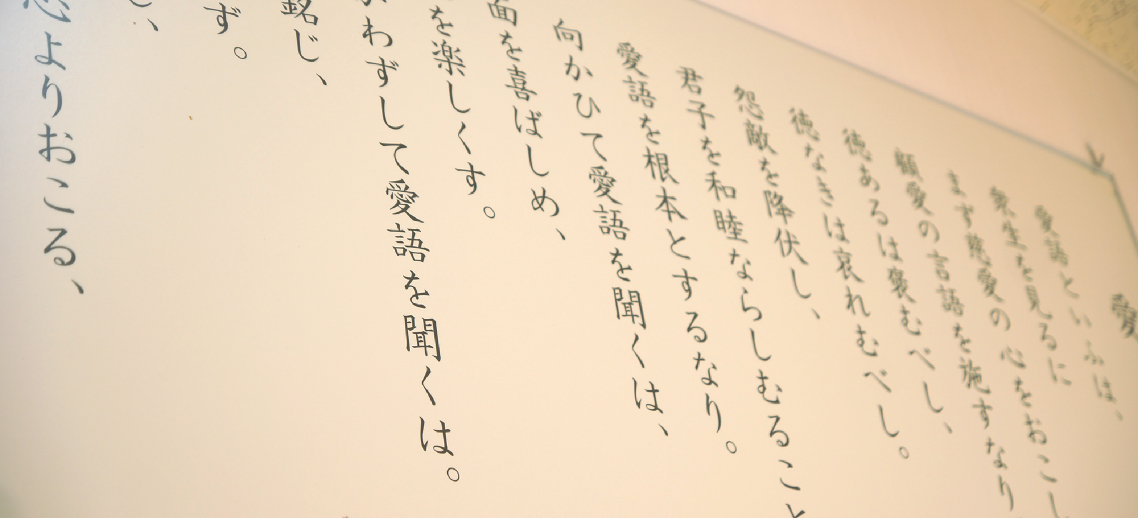 愛
愛語といふは、
衆生を見るに
まず慈愛の心をおこし
顧愛の言語を施すなり
徳あるは褒むべし、
徳なきは哀れむべし。
怨敵を降伏し、
君子を和睦ならしむること
愛語を根本とするなり。
向かひて愛語を聞くは、
面を喜ばしめ、
を楽しくす。
わずして愛語を聞くは。
銘じ、
ず。
、
よりおこる、